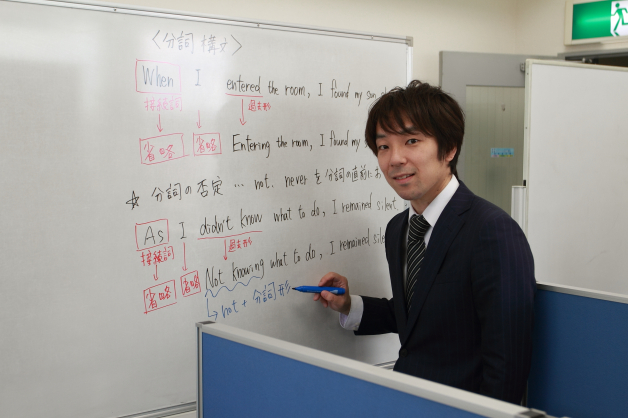 <分詞構文>
When I entered the room, I found my son
接続詞 過去形
省略 省略 Entering the room, I found my
☆ 分詞の否定 … not, neverを分詞の直前に
As I didn't know what to do, I remained silent.
接続詞 過去形
省略 省略 Not knowing what to do, I remained silent
↳ not + 分詞形